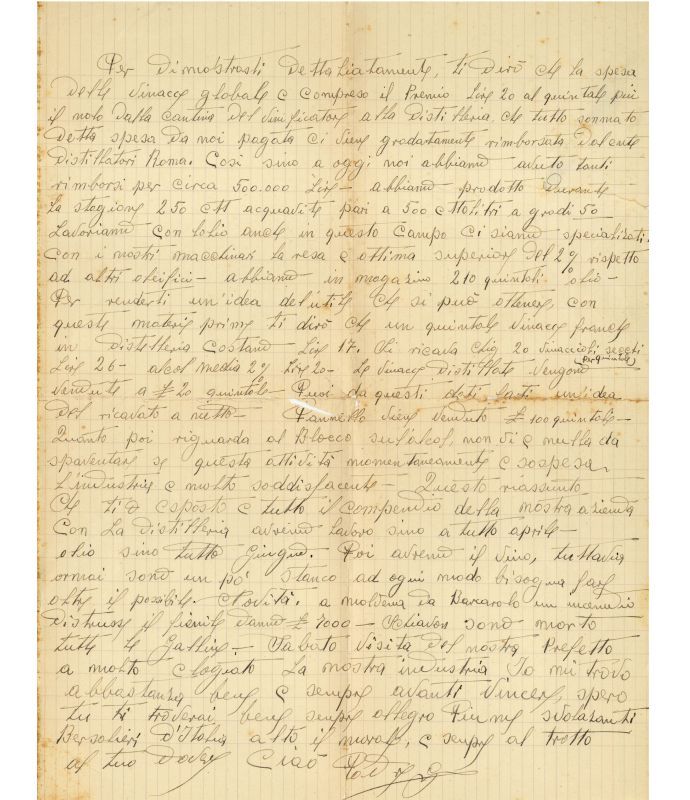 Per Dimostrasti Dettaliatamente, ti Dirò che la spesa
Delle Vinacce globale è compreso il Premio Lire 20 al quintale più
il nolo Dalla cantina Del Vinificatore alla Distilleria, che tutto sommato
Detta spesa Da noi pagata Ci viene gradatamente rimborsata Dal ente
Distillatori Roma. Così sino a oggi noi abbiamo avuto tanti
rimborsi per circa 500.000 Lire - abbiamo prodotto Durante
La stagione 250 ett acquavite pari a 500 ettolitri a gradi 50
Lavoriamo Con lolio anche in questo Campo Ci siamo specializati.
Con i nostri macchinari la resa è ottima superiore Del 2% rispetto
ad altri oleifici - abbiamo in magazino 210 quintali olio -
Per renderti un'idea del utile che si può ottenere, con
queste materie prime ti dirò che un quintale Vinacce franche
in Distilleria Costano Lire 17. Si ricava Chig 20 Vinaccioli secchi
per quintale
Lire 26 - alcol media 2% Lire 20 - Le Vinacce Distillate vengono
vendute a £ 20 quintale - Puoi da questi dati farti un'idea
Del ricavato a netto - Pannello viene venduto £ 100 quintale -
Quanto poi riguarda al Blocco sull'alcol, non vi è nulla da
spaventare se questa attività momentaneamente è sospesa.
L'industria è molto soddisfacente - Questo riassunto
Che ti o esposto è tutto il compendio della nostra azienda
Con La Distilleria avremo lavoro sino a tutto aprile -
olio sino tutto Giugno. Poi avremo il vino, tuttavia
ormai sono un po' stanco ad ogni modo bisogna fare
oltre il possibile. Novità: a moldena da Barcarolo un incendio
Distrusse il fienile Danno £ 7000 - sono morte
tutte le Galline - Sabato visita Del nostro Prefetto
a molto elogiato La nostra industria Io mi trovo
abbastanza bene e sempre avanti Vincere, spero
tu ti troverai bene sempre allegro Piume svolazanti
Bersalieri D'Italia alto il morale, e sempre al trotto
al tuo Dovere Ciaò